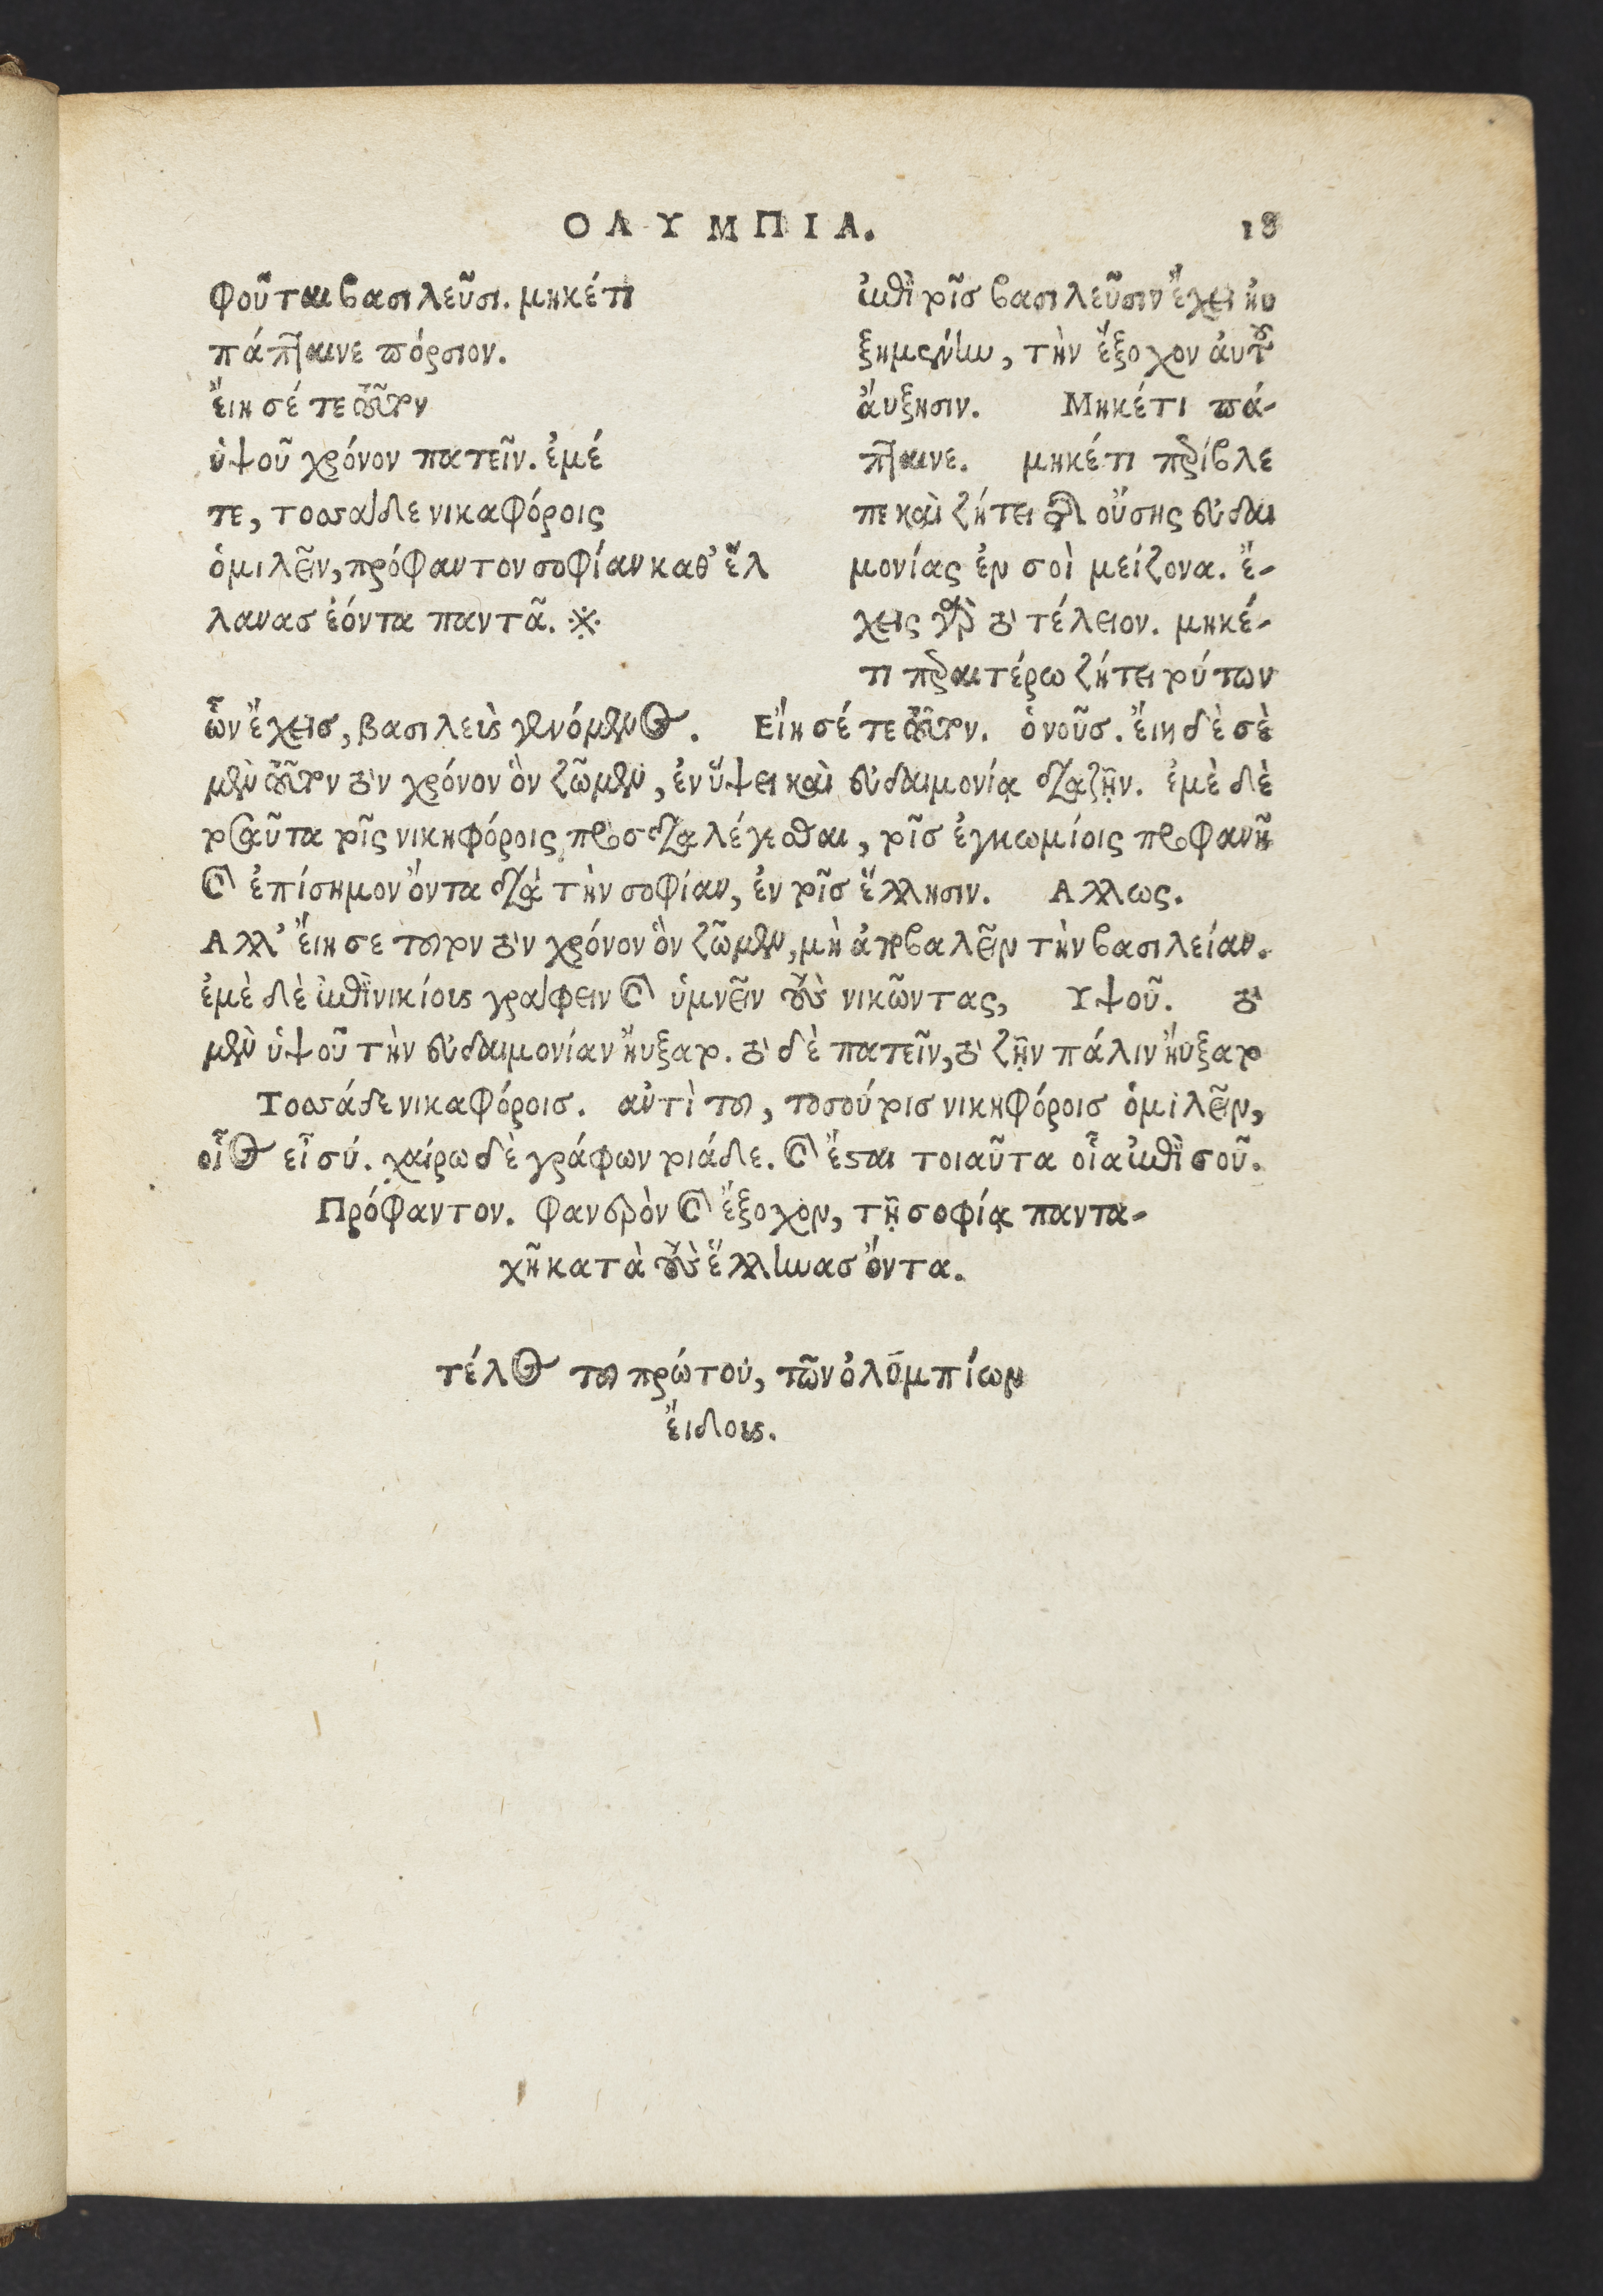 ΟΛΥΜΠΙΑ. 18
φοῦται βασιλεῦσι. μηκέτι
πάπταινε πόρσιον.
ἔιη σέ τε τοῦτον
ὑψοῦ χρόνον πατεῖν. ἐμέ
τε, τοσσάδε νικαφόροις
ὁμιλεῖν, πρόφαντον σοφίαν καθ' ἕλ
λανας ἐόντα παντᾶ. ※
ἐπὶ τοῖς βασιλεῦσιν ἔχει ηυ
ξημένην, τὴν ἔξοχον ἀυτοῦ
ἄυξησιν. Μηκέτι πά-
πταινε. μηκέτι περίβλε
πε καὶ ζήτει τῆς οὔσης εὐδαι
μονίας ἐν σοὶ μείζονα. ἔ-
χεις γὰρ τὸ τέλειον. μηκέ-
τι περαιτέρω ζήτει τούτων
ὧν ἔχεις, βασιλεὺς γενόμενος. Εἴη σέ τε τοῦτον. ὁ νοῦς. ἔιη δὲ σὲ
μὲν τοῦτον τὸν χρόνον ὃν ζῶμεν, ἐν ὕψει καὶ εὐδαιμονίᾳ διαζῆν. ἐμὲ δὲ
τοιαῦτα τοῖς νικηφόροις προσδιαλέγεσθαι, τοῖς ἐγκωμίοις προφανῆ
καὶ ἐπίσημον ὄντα διὰ τὴν σοφίαν, ἐν τοῖς ἕλλησιν. Αλλως.
Αλλ' ἔιη σε τουτον τὸν χρόνον ὃν ζῶμεν, μὴ ἀποβαλεῖν τὴν βασιλείαν.
ἐμὲ δὲ ἐπινικίους γράφειν καὶ ὑμνεῖν τοὺς νικῶντας, Υψοῦ. τὸ
μὲν ὑψοῦ τὴν εὐδαιμονίαν ἤυξατο. τὸ δὲ πατεῖν, τὸ ζῆν πάλιν ἤυξατο
Τοσσάδε νικαφόροις. αντὶ του, τοσούτοις νικηφόροις ὁμιλεῖν,
οἷος εἶ σύ. χαίρω δὲ γράφων τοιάδε. καὶ ἔσται τοιαῦτα οἷα ἐπὶ σοῦ.
Πρόφαντον. φανερὸν καὶ ἔξοχον, τῇ σοφίᾳ παντα-
χῆ κατὰ τοὺς ἕλληνας ὄντα.
τέλος του πρώτου, τῶν ὀλυμπίων
ἔιδους.